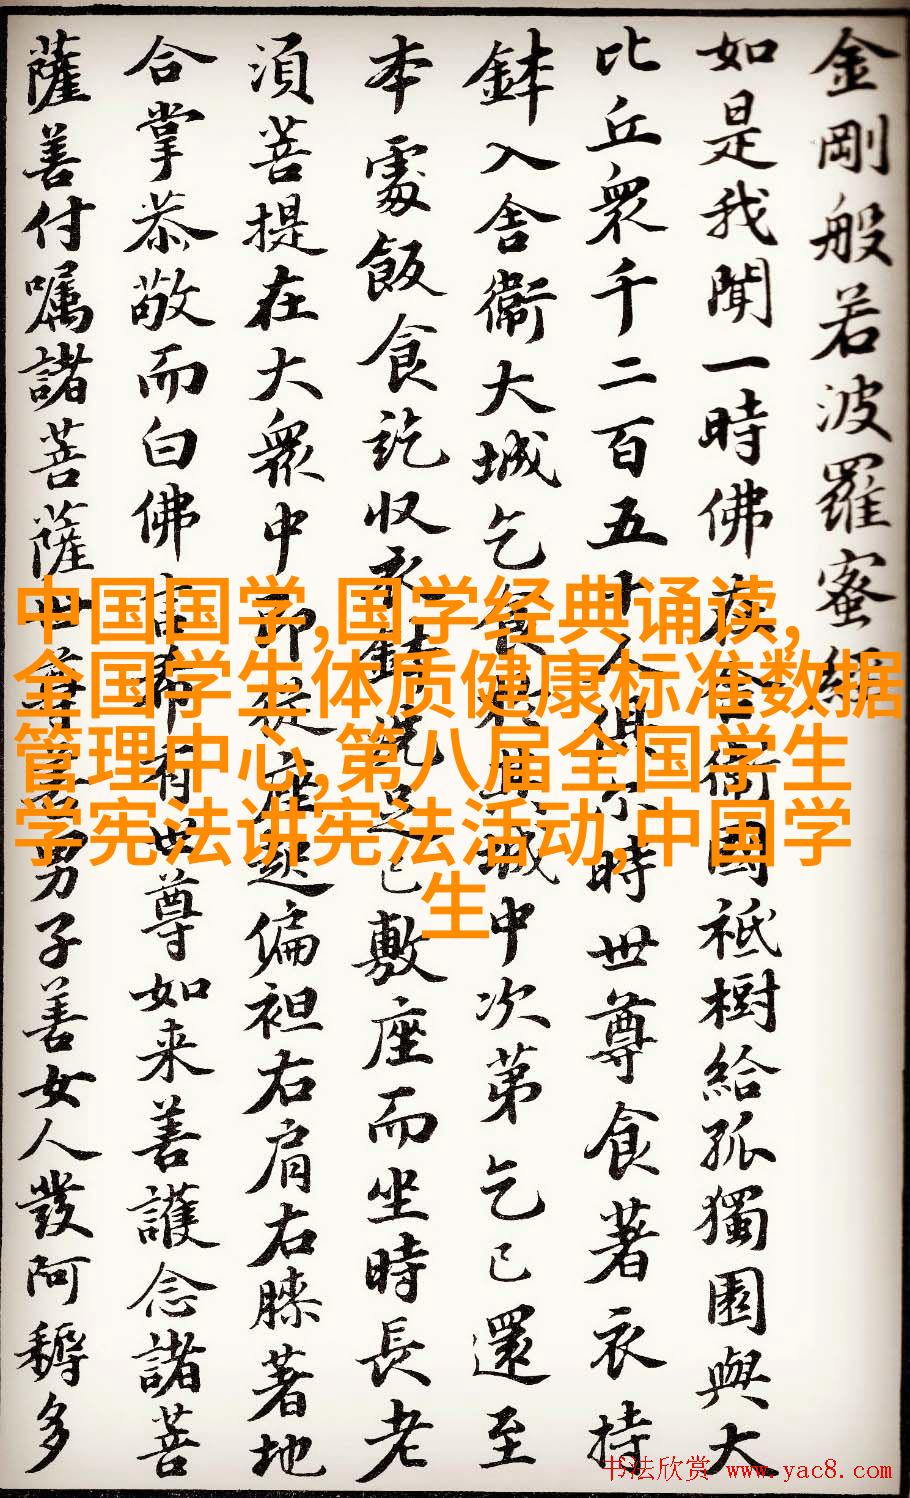 金剛般若波羅蜜經
如是我聞一時佛在舍衛國祇樹給孤獨園與大
比丘衆千二百五十人俱尒時世尊食著衣持
鉢入舍衞大城乞食於其城中次第乞已還至
本處飯食訖収衣鉢洗足已敷座而坐時長老
湏菩提在大衆中即從座起偏袒右肩右膝著地
合掌恭敬而白佛言希有世尊如来善護念諸菩
薩善付嘱諸菩薩世尊善男子善女人發阿耨多
中国国学,国学经典诵读,
全国学生体质健康标准数据
管理中心,第八届全国学生
学宪法讲宪法活动,中国学
生
书法欣赏 www.yac8.com